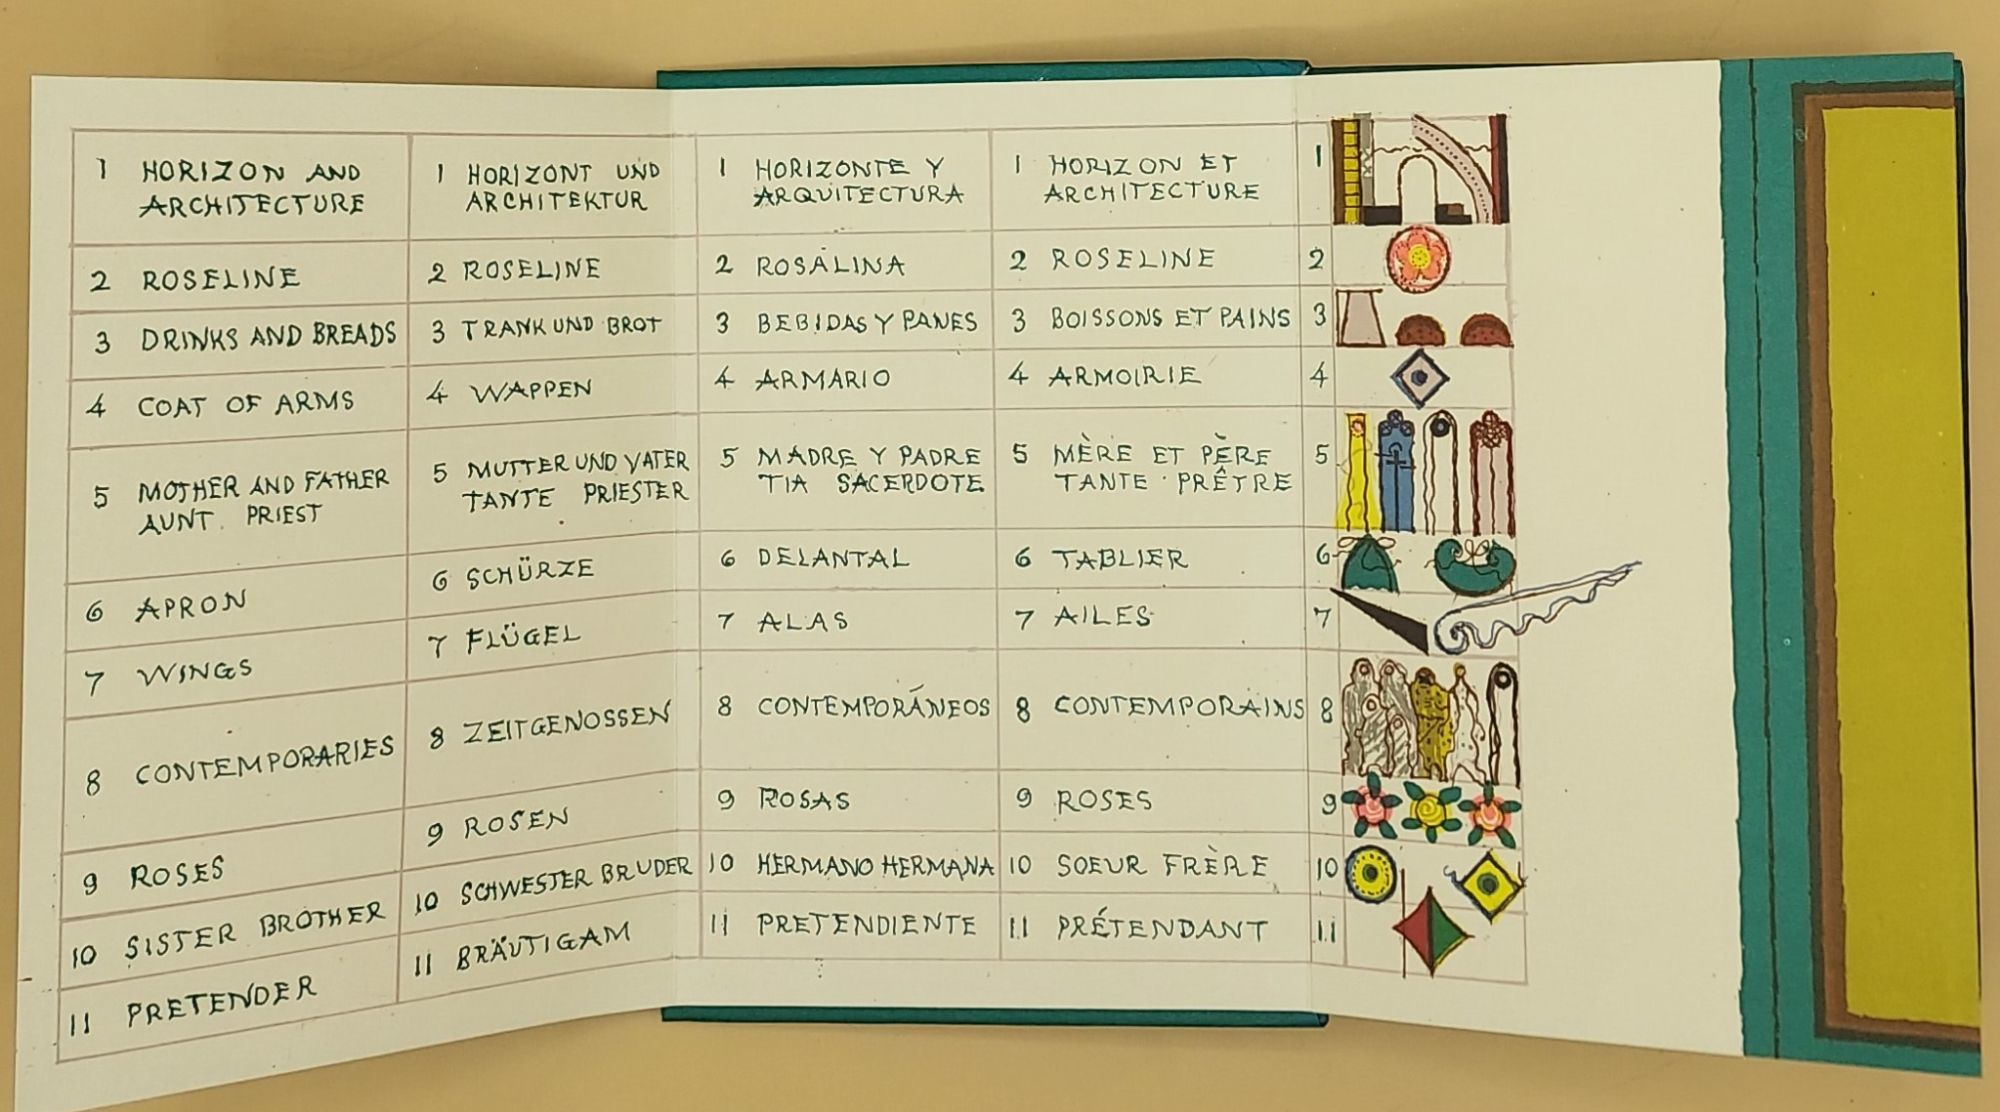 1 HORIZON AND
ARCHITECTURE
2 ROSELINE
3 DRINKS AND BREADS
4 COAT OF ARMS
5 MOTHER AND FATHER
AUNT. PRIEST
6 APRON
7 WINGS
8 CONTEMPORARIES
9 ROSES
10 SISTER BROTHER
11 PRETENDER
1 HORIZONT UND
ARCHITEKTUR
2 ROSELINE
3 TRANK UND BROT
4 WAPPEN
5 MUTTER UND VATER
TANTE PRIESTER
6 SCHÜRZE
7 FLÜGEL
8 ZEITGENOSSEN
9 ROSEN
10 SCHWESTER BRUDER
11 BRÄUTIGAM
1 HORIZONTE Y
ARQUITECTURA
2 ROSALINA
3 BEBIDAS Y PANES
4 ARMARIO
5 MADRE Y PADRE
TIA SACERDOTE
6 DELANTAL
7 ALAS
8 CONTEMPORÁNEOS
9 ROSAS
10 HERMANO HERMANA
11 PRETENDIENTE
1 HORIZON ET
ARCHITECTURE
2 ROSELINE
3 BOISSONS ET PAINS
4 ARMOIRIE
5 MÈRE ET PÈRE
TANTE · PRÊTRE
6 TABLIER
7 AILES
8 CONTEMPORAINS
9 ROSES
10 SOEUR FRÈRE
11 PRÉTENDANT
1
2
3
4
5
6
7
8
9
10
11